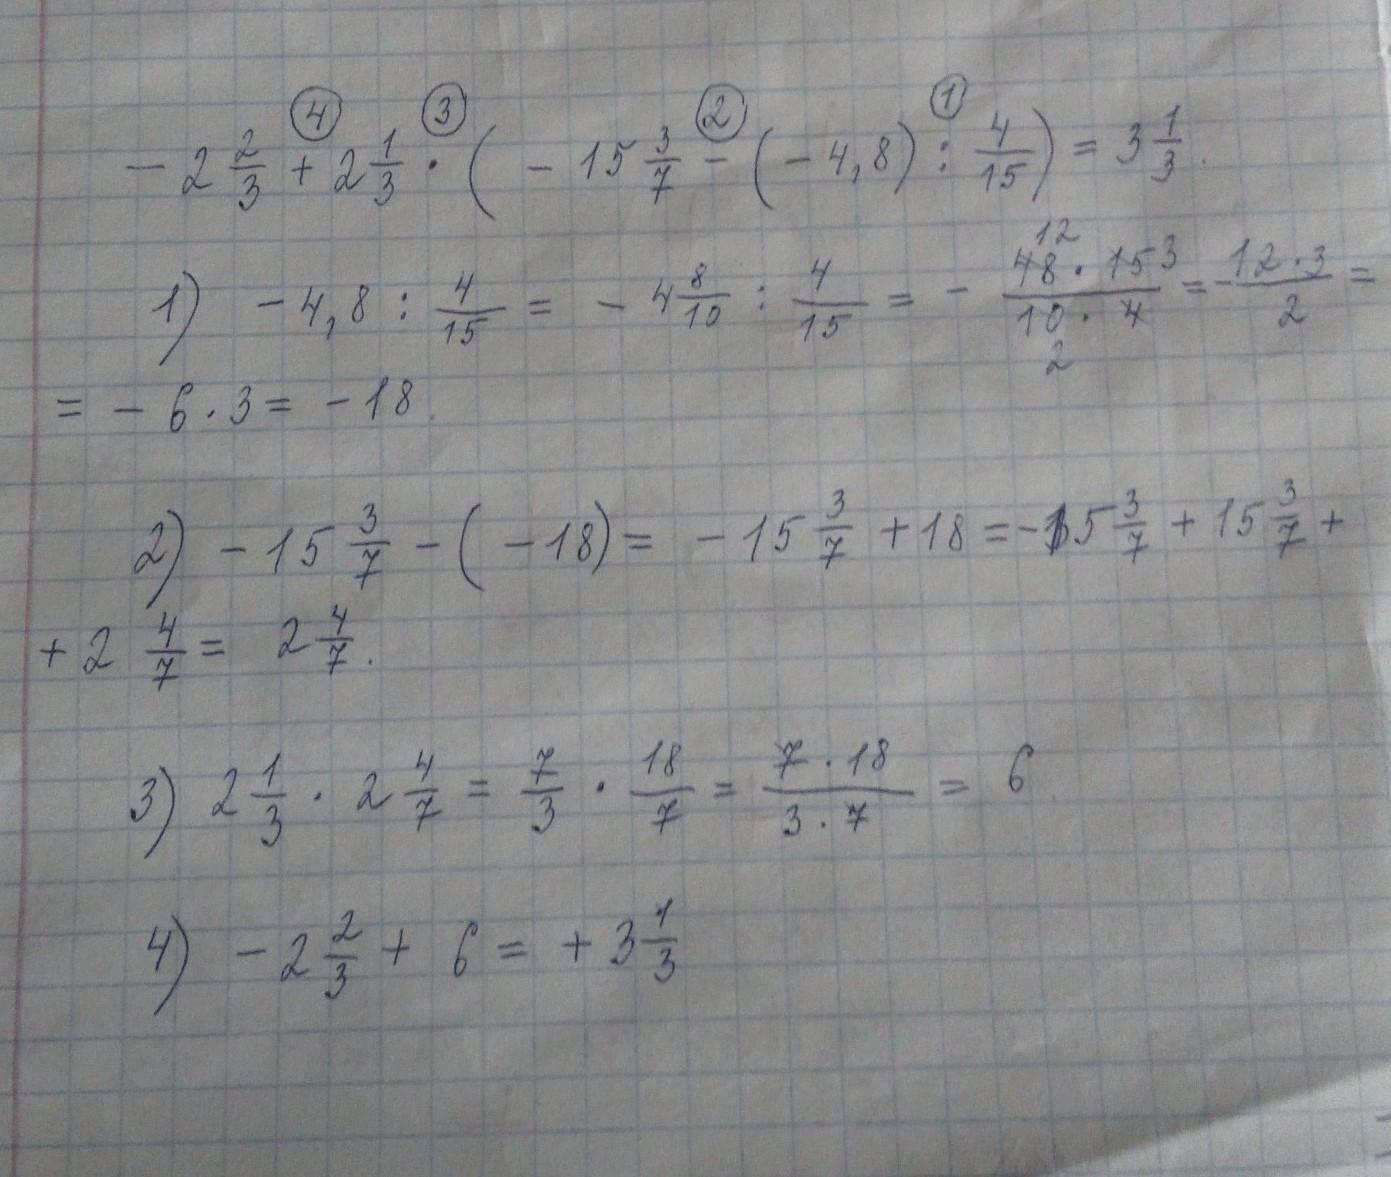 ④ ③ ② ①
- 2 2/3 + 2 1/3 · ( - 15 3/7 - (- 4,8) : 4/15 ) = 3 1/3.
1) - 4,8 : 4/15 = - 4 8/10 : 4/15 = - (48 · 15)/(10 · 4) 12 3 2 = - (12 · 3)/2 =
= - 6 · 3 = - 18.
2) - 15 3/7 - ( - 18) = - 15 3/7 + 18 = - 15 3/7 + 15 3/7 +
+ 2 4/7 = 2 4/7.
3) 2 1/3 · 2 4/7 = 7/3 · 18/7 = (7 · 18)/(3 · 7) = 6
4) - 2 2/3 + 6 = + 3 1/3